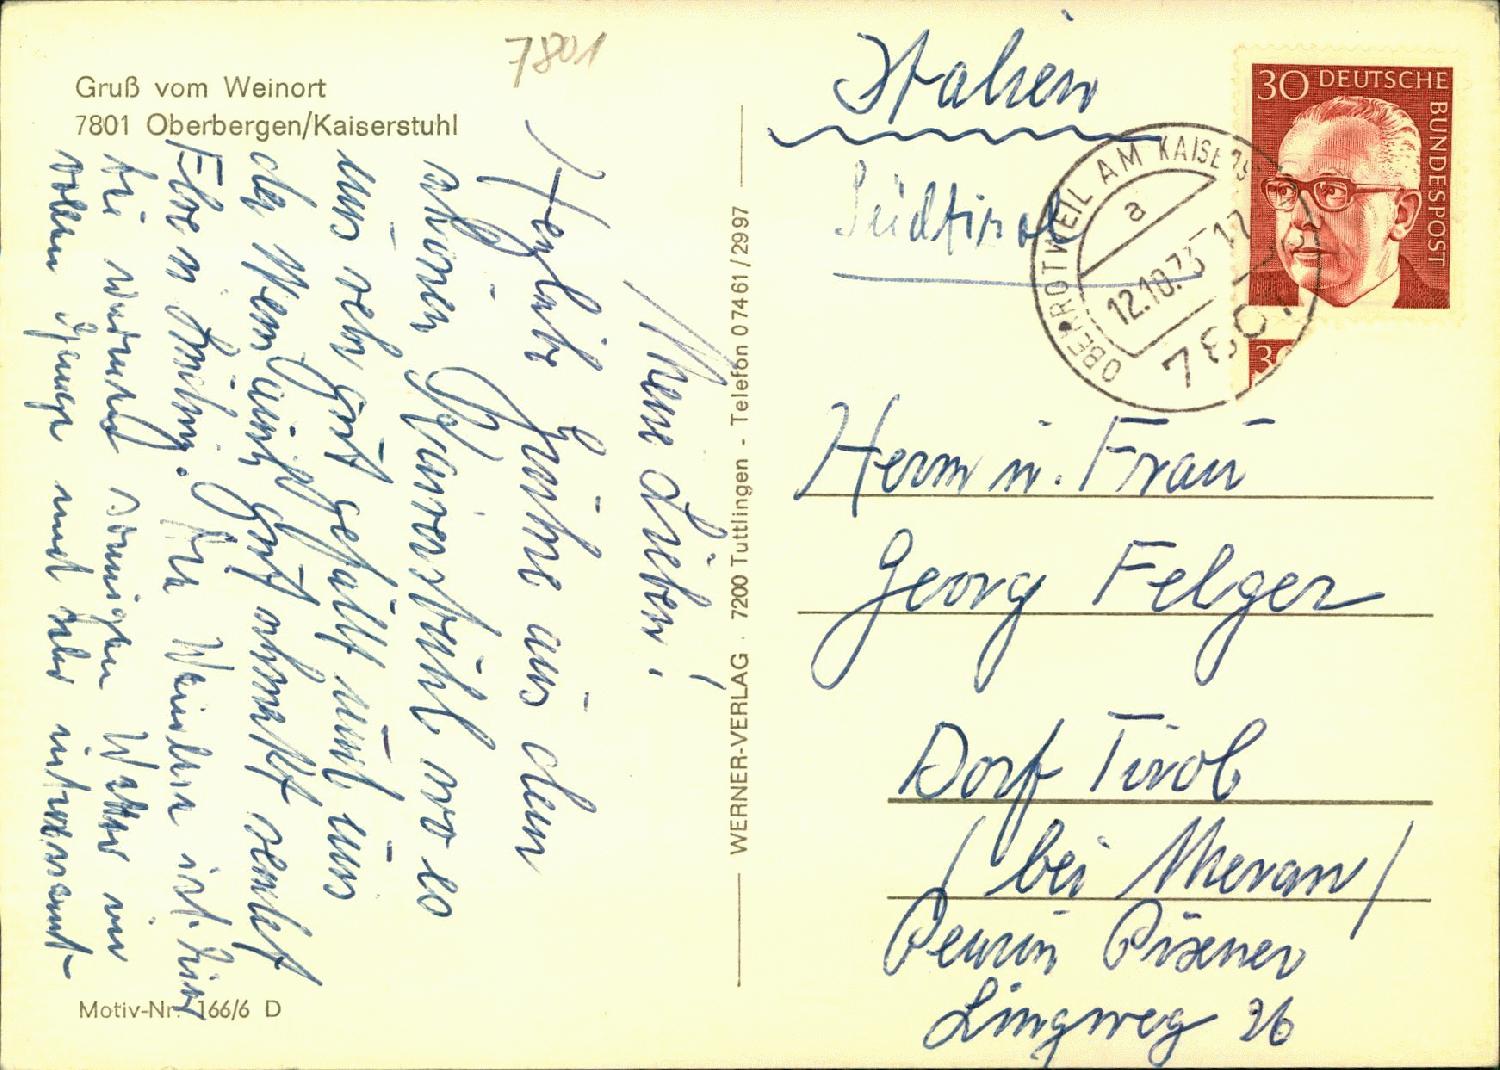 7801
Gruß vom Weinort
7801 Oberbergen/Kaiserstuhl
Meine Lieben!
Herzliche Grüße aus dem
schönen Kaiserstuhl wo es
uns sehr gut gefällt und uns
der Wein auch gut schmeckt sendet
Eltern. Die Weinlese ist hier
bei sonnigem Wetter im
vollen Gange und sehr interessant
Motiv-Nr. 166/6 D
WERNER-VERLAG · 7200 Tuttlingen - Telefon 07461/2997
Italien
Südtirol
30 DEUTSCHE BUNDESPOST
30
OBERROTWEIL AM KAISERS
a
12.10.73-17
7801
Herrn u. Frau
Georg Felger
Dorf Tirol
/ bei Meran /
Pension Pixner
Lingweg 26